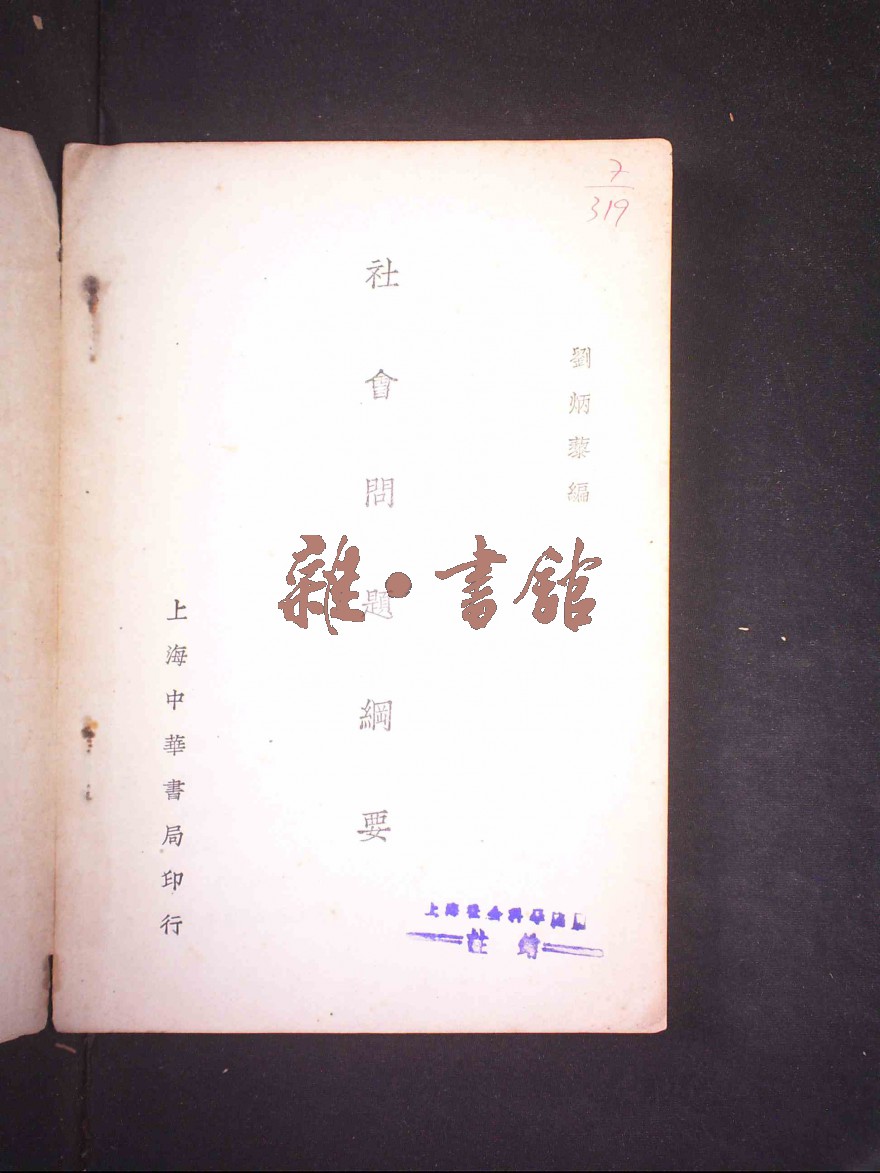 7
319
劉炳藜編
社會問題綱要
雜·書館
上海中華書局印行
上海社会科学院